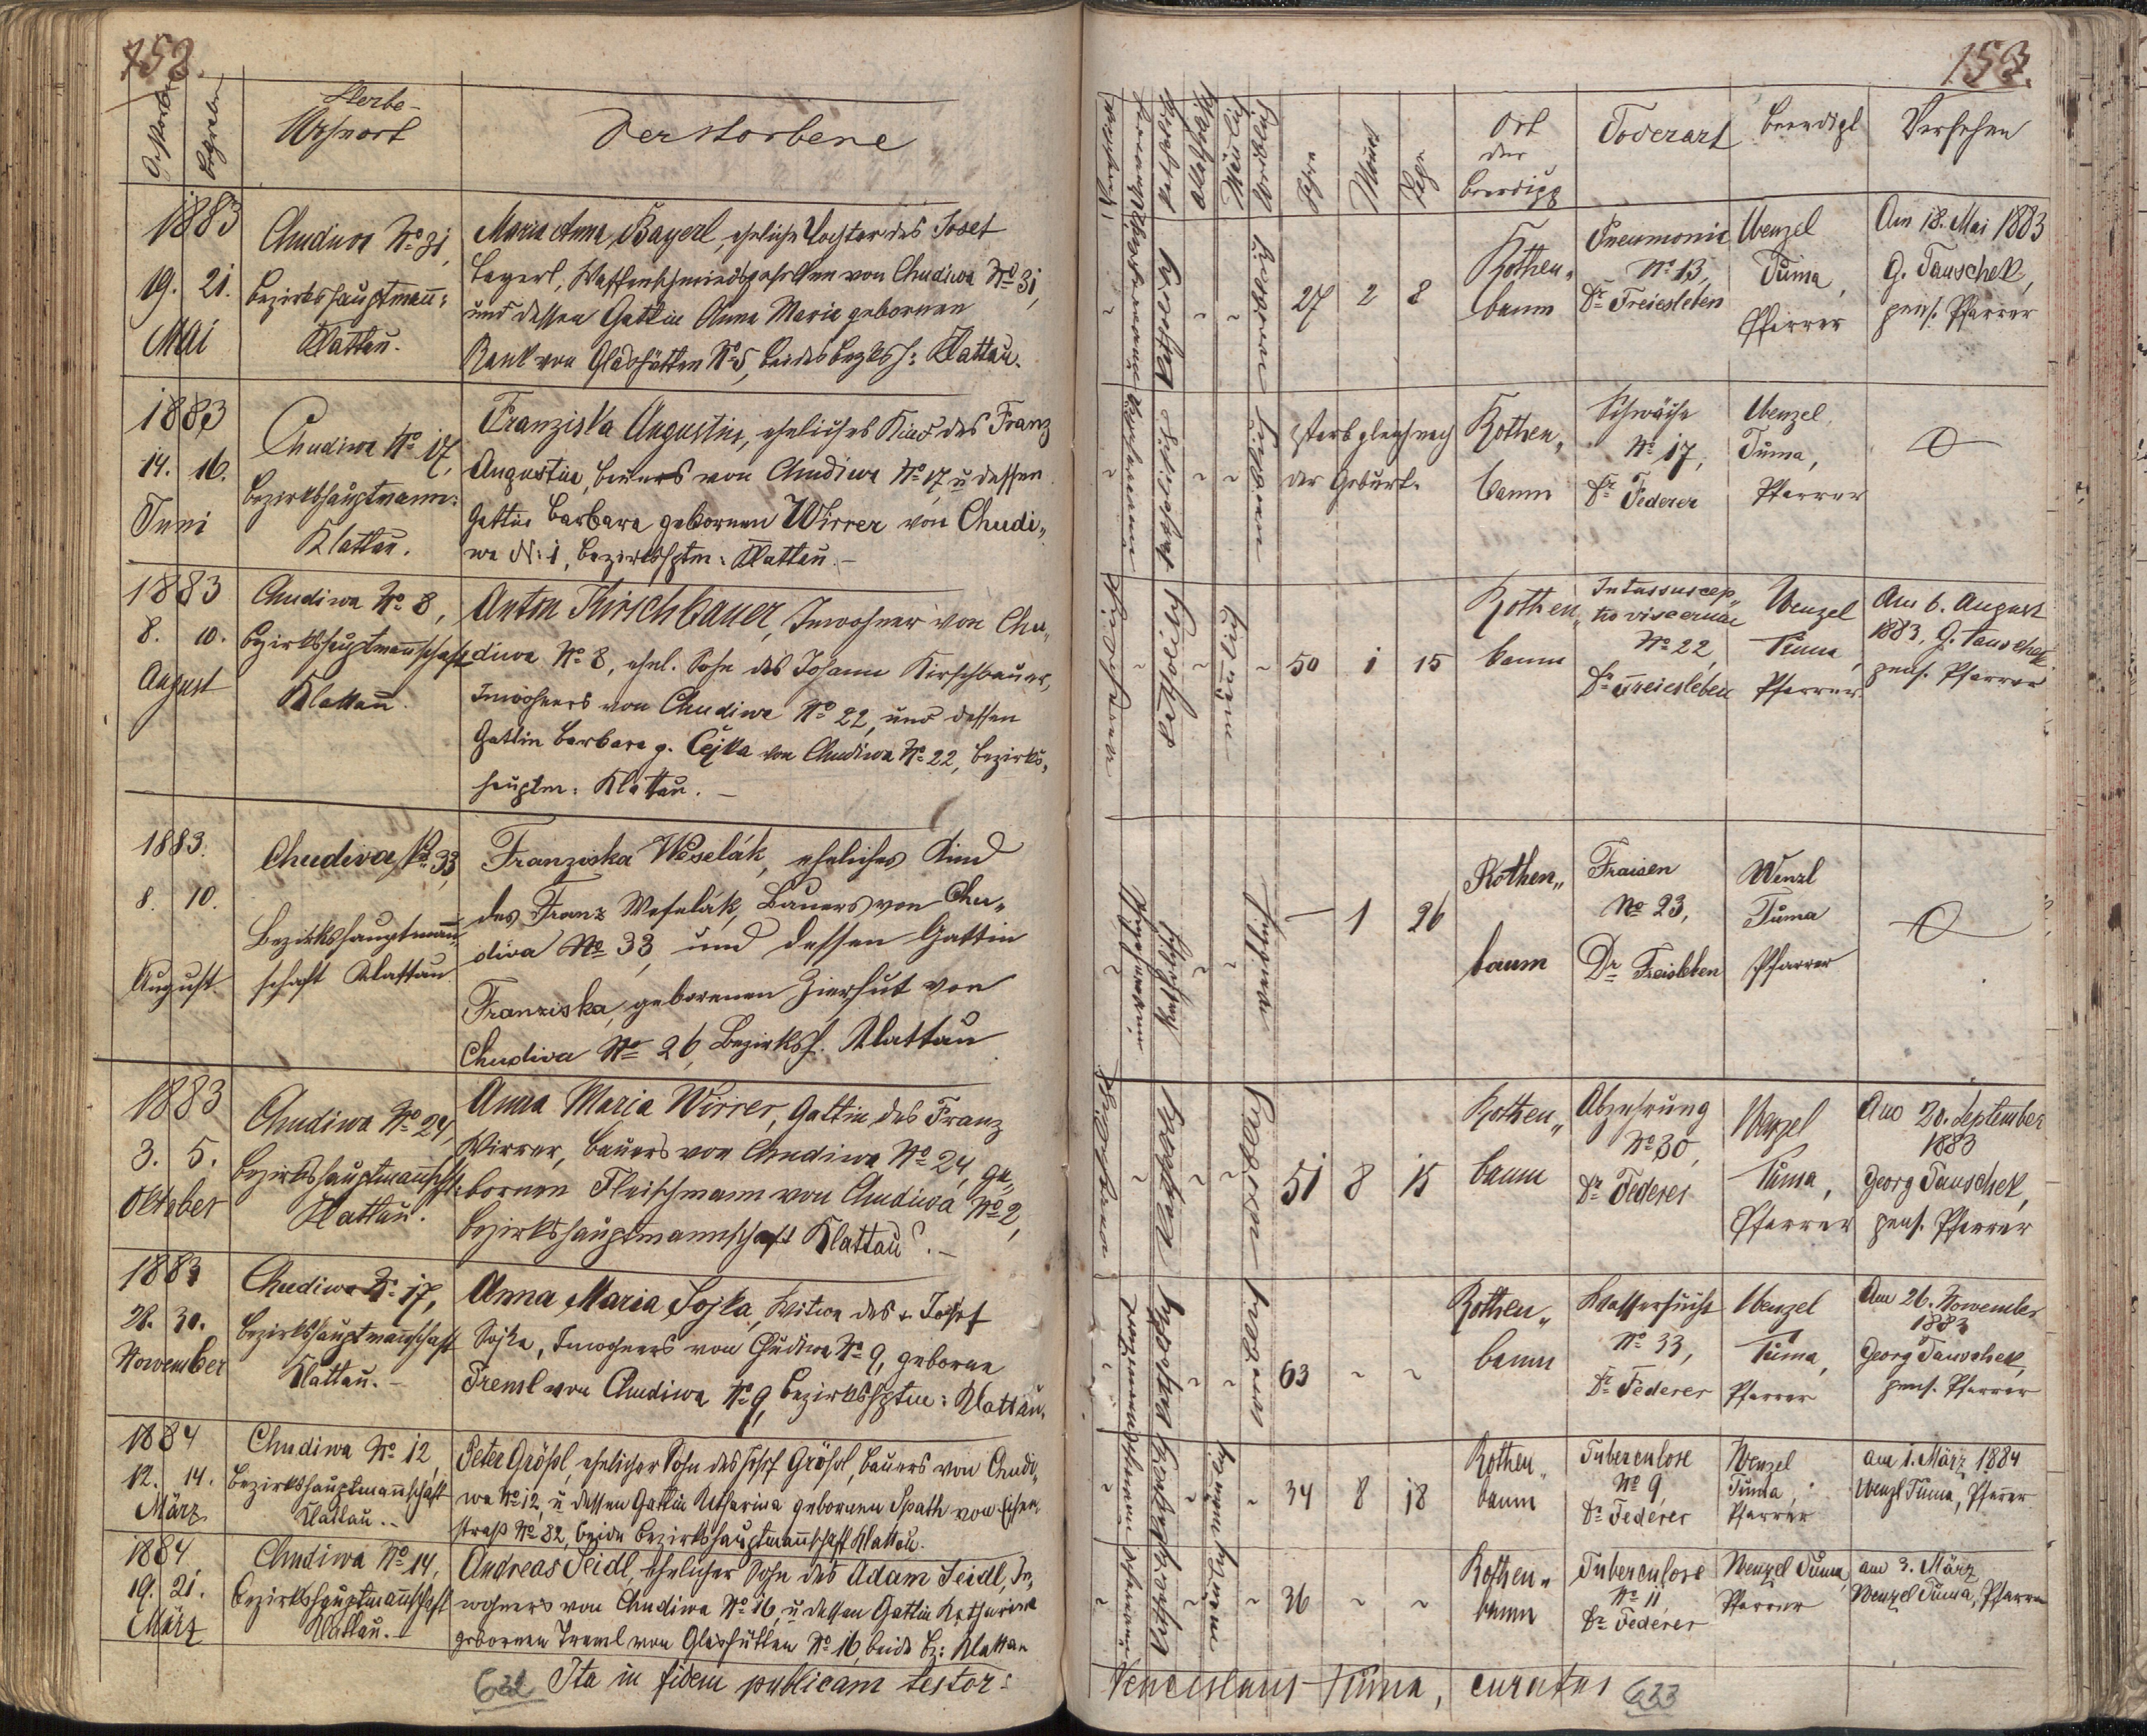 152.
Gestorben
Begraben
Sterbe-
Ursort
Verstorbene
1883
19. 21.
Mai
Chudiwa No 31,
Bezirkshauptmann:
Klattau.
Maria Anna Bayerl, eheliche Tochter des Josef
Bayerl, Waffenschmiedgesellen von Chudiwa No 31,
und dessen Gattin Anna Maria gebornen
Rank von Glashütten No 5, beides Bezksh: Klattau.
1883
14. 16.
Juni
Chudiwa No 17,
Bezirkshauptmann:
Klattau.
Franziska Augustin, eheliches Kind des Franz
Augustin, Bauers von Chudiwa No 17, u dessen
Gattin Barbara gebornen Wirrer von Chudi„
wa N: 1, Bezirkshptm: Klattau. –
1883
8. 10.
August
Chudiwa No 8,
Bezirkshauptmannschaft
Klattau.
Anton Kirschbauer, Inwohner von Chu„
diwa No 8, ehel. Sohn des Johann Kirschbauer,
Inwohners von Chudiwa No 22, und dessen
Gattin Barbara g. Čejka von Chudiwa No 22, Bezirks„
hauptm: Klattau. –
1883.
8. 10.
August
Chudiva No 33,
Bezirkshauptmann„
schaft Klattau
Franziska Weselák, eheliches Kind
des Franz Weselák, Bauers von Chu„
diva No 33, und dessen Gattin
Franziska, geborenen Zierhut von
Chudiva No 26, Bezirksh. Klattau
1883
3. 5.
Oktober
Chudiwa No 24,
Bezirkshauptmannschft:
Klattau.
Anna Maria Wirrer, Gattin des Franz
Wirrer, Bauers von Chudiwa No 24, ge„
bornen Fleischmann von Chudiwa No 2,
Bezirkshauptmannschaft Klattau. –
1883
28. 30.
November
Chudiwa No 17,
Bezirkshauptmannschaft
Klattau. –
Anna Maria Sojka, Witwe des + Josef
Sojka, Inwohners von Chudiwa No 9, geborne
Treml von Chudiwa No 9, Bezirkshptm: Klattau.
1884
12. 14.
März
Chudiwa No 12,
Bezirkshauptmannschaft
Klattau. –
Peter Größl, ehelicher Sohn des Josef Größl, Bauers von Chudi„
wa No 12, u dessen Gattin Katharina gebornen Spath von Eisen„
straß No 82, beide Bezirkshauptmannschaft Klattau.
1884
19. 21.
März
Chudiwa No 14,
Bezirkshauptmannschaft
Klattau. –
Andreas Seidl, ehelicher Sohn des Adam Seidl, In„
wohners von Chudiwa No 16, u dessen Gattin Katharina
gebornen Treml von Glashütten No 16, beide Bz: Klattau
632 Ita in fidem publicam testor:
153.
Katholisch
Mänlich
Weiblich
Jahre
Monat
Tage
Ort
der
Beerdigg
Todesart
Beerdigt
Versehen
27 2 8
Rothen„
baum
Pneumonie
No 13,
Dr Freiesleben
Wenzel
Tuma,
Pfarrer
Am 18. Mai 1883
G. Tauschek,
pens. Pfarrer
starb gleich nach
der Geburt.
Rothen„
baum
Schwäche
No 17,
Dr Federer
Wenzel
Tuma,
Pfarrer
50 1 15
Rothen„
baum
Intussuscep„
tio viscerum
No 22,
Dr Freiesleben
Wenzel
Tuma,
Pfarrer
Am 6. August
1883, G. Tauschek
pens. Pfarrer
– 1 26
Rothen„
baum
Fraisen
No 23,
Dr Freisleben
Wenzl
Tuma
Pfarrer
51 8 15
Rothen„
baum
Abzehrung
No 30,
Dr Federer
Wenzel
Tuma,
Pfarrer
Am 20. September
1883
Georg Tauschek,
pens. Pfarrer
63 ~ ~
Rothen„
baum
Wassersucht
No 33,
Dr Federer
Wenzel
Tuma,
Pfarrer
Am 26. November
1883
Georg Tauschek,
pens. Pfarrer
34 8 18
Rothen„
baum
Tuberculose
No 9,
Dr Federer
Wenzel
Tuma,
Pfarrer
am 1. März 1884
Wenzl Tuma, Pfarrer
36 ~ ~
Rothen„
baum
Tuberculose
No 11
Dr Federer
Wenzel Tuma,
Pfarrer
am 3. März
Wenzel Tuma, Pfarrer
Venceslaus Tuma, curatus 633